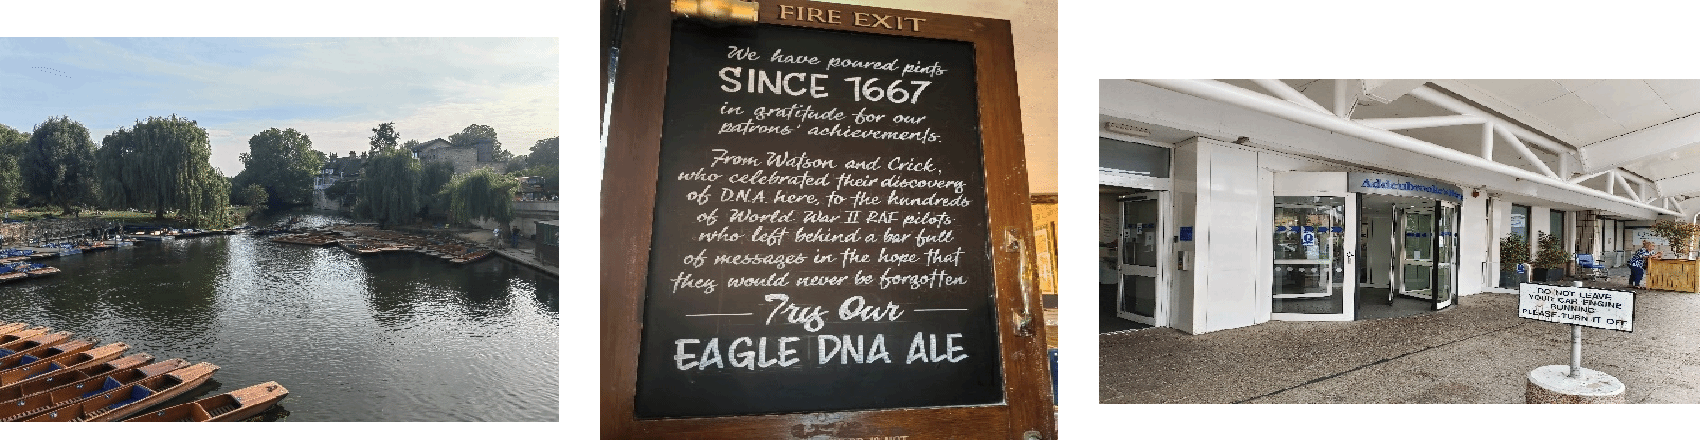 FIRE EXIT
We have poured pints
SINCE 1667
in gratitude for our
patrons' achievements.
From Watson and Crick,
who celebrated their discovery
of D.N.A. here, to the hundreds
of World War II RAF pilots
who left behind a bar full
of messages in the hope that
they would never be forgotten
Try Our
EAGLE DNA ALE
Addenbrooke's
DO NOT LEAVE
YOUR CAR ENGINE
RUNNING
PLEASE TURN IT OFF